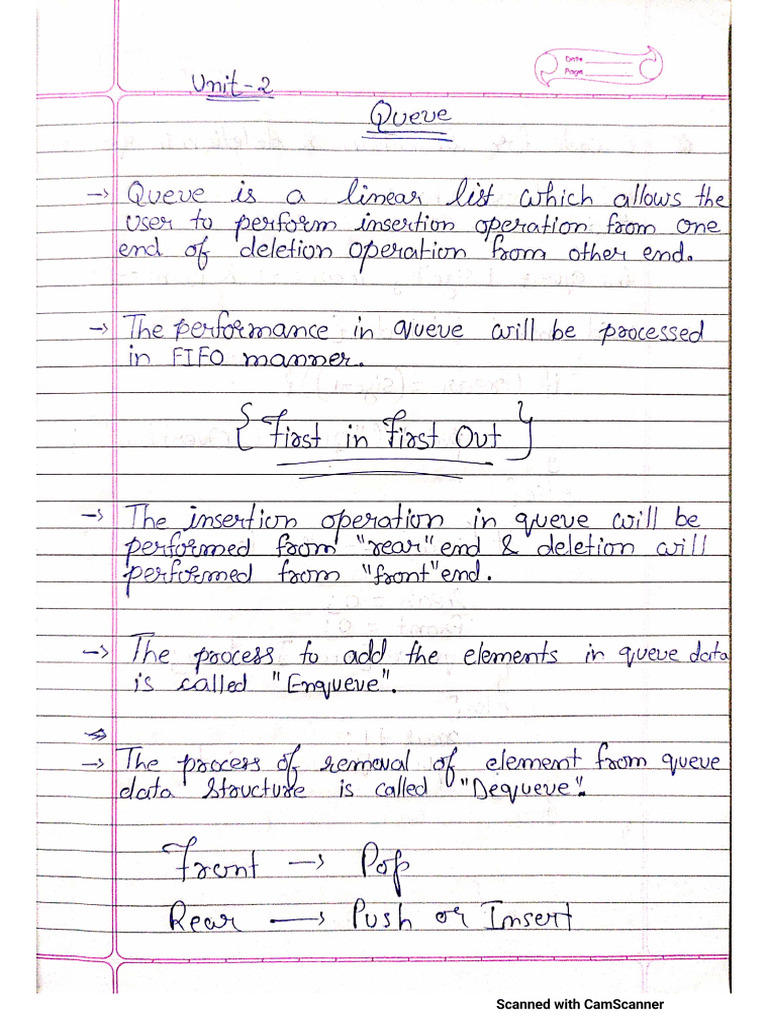 Date
Page
Unit-2
Queue
→ Queue is a linear list which allows the
user to perform insertion operation from one
end of deletion operation from other end.
→ The performance in queue will be processed
in FIFO manner.
{ First in First Out }
→ The insertion operation in queue will be
performed from "rear" end & deletion will
performed from "front" end.
→ The process to add the elements in queue data
is called "Enqueue".
→ The process of removal of element from queue
data structure is called "Dequeue".
Front → Pop
Rear → Push or Insert
Scanned with CamScanner